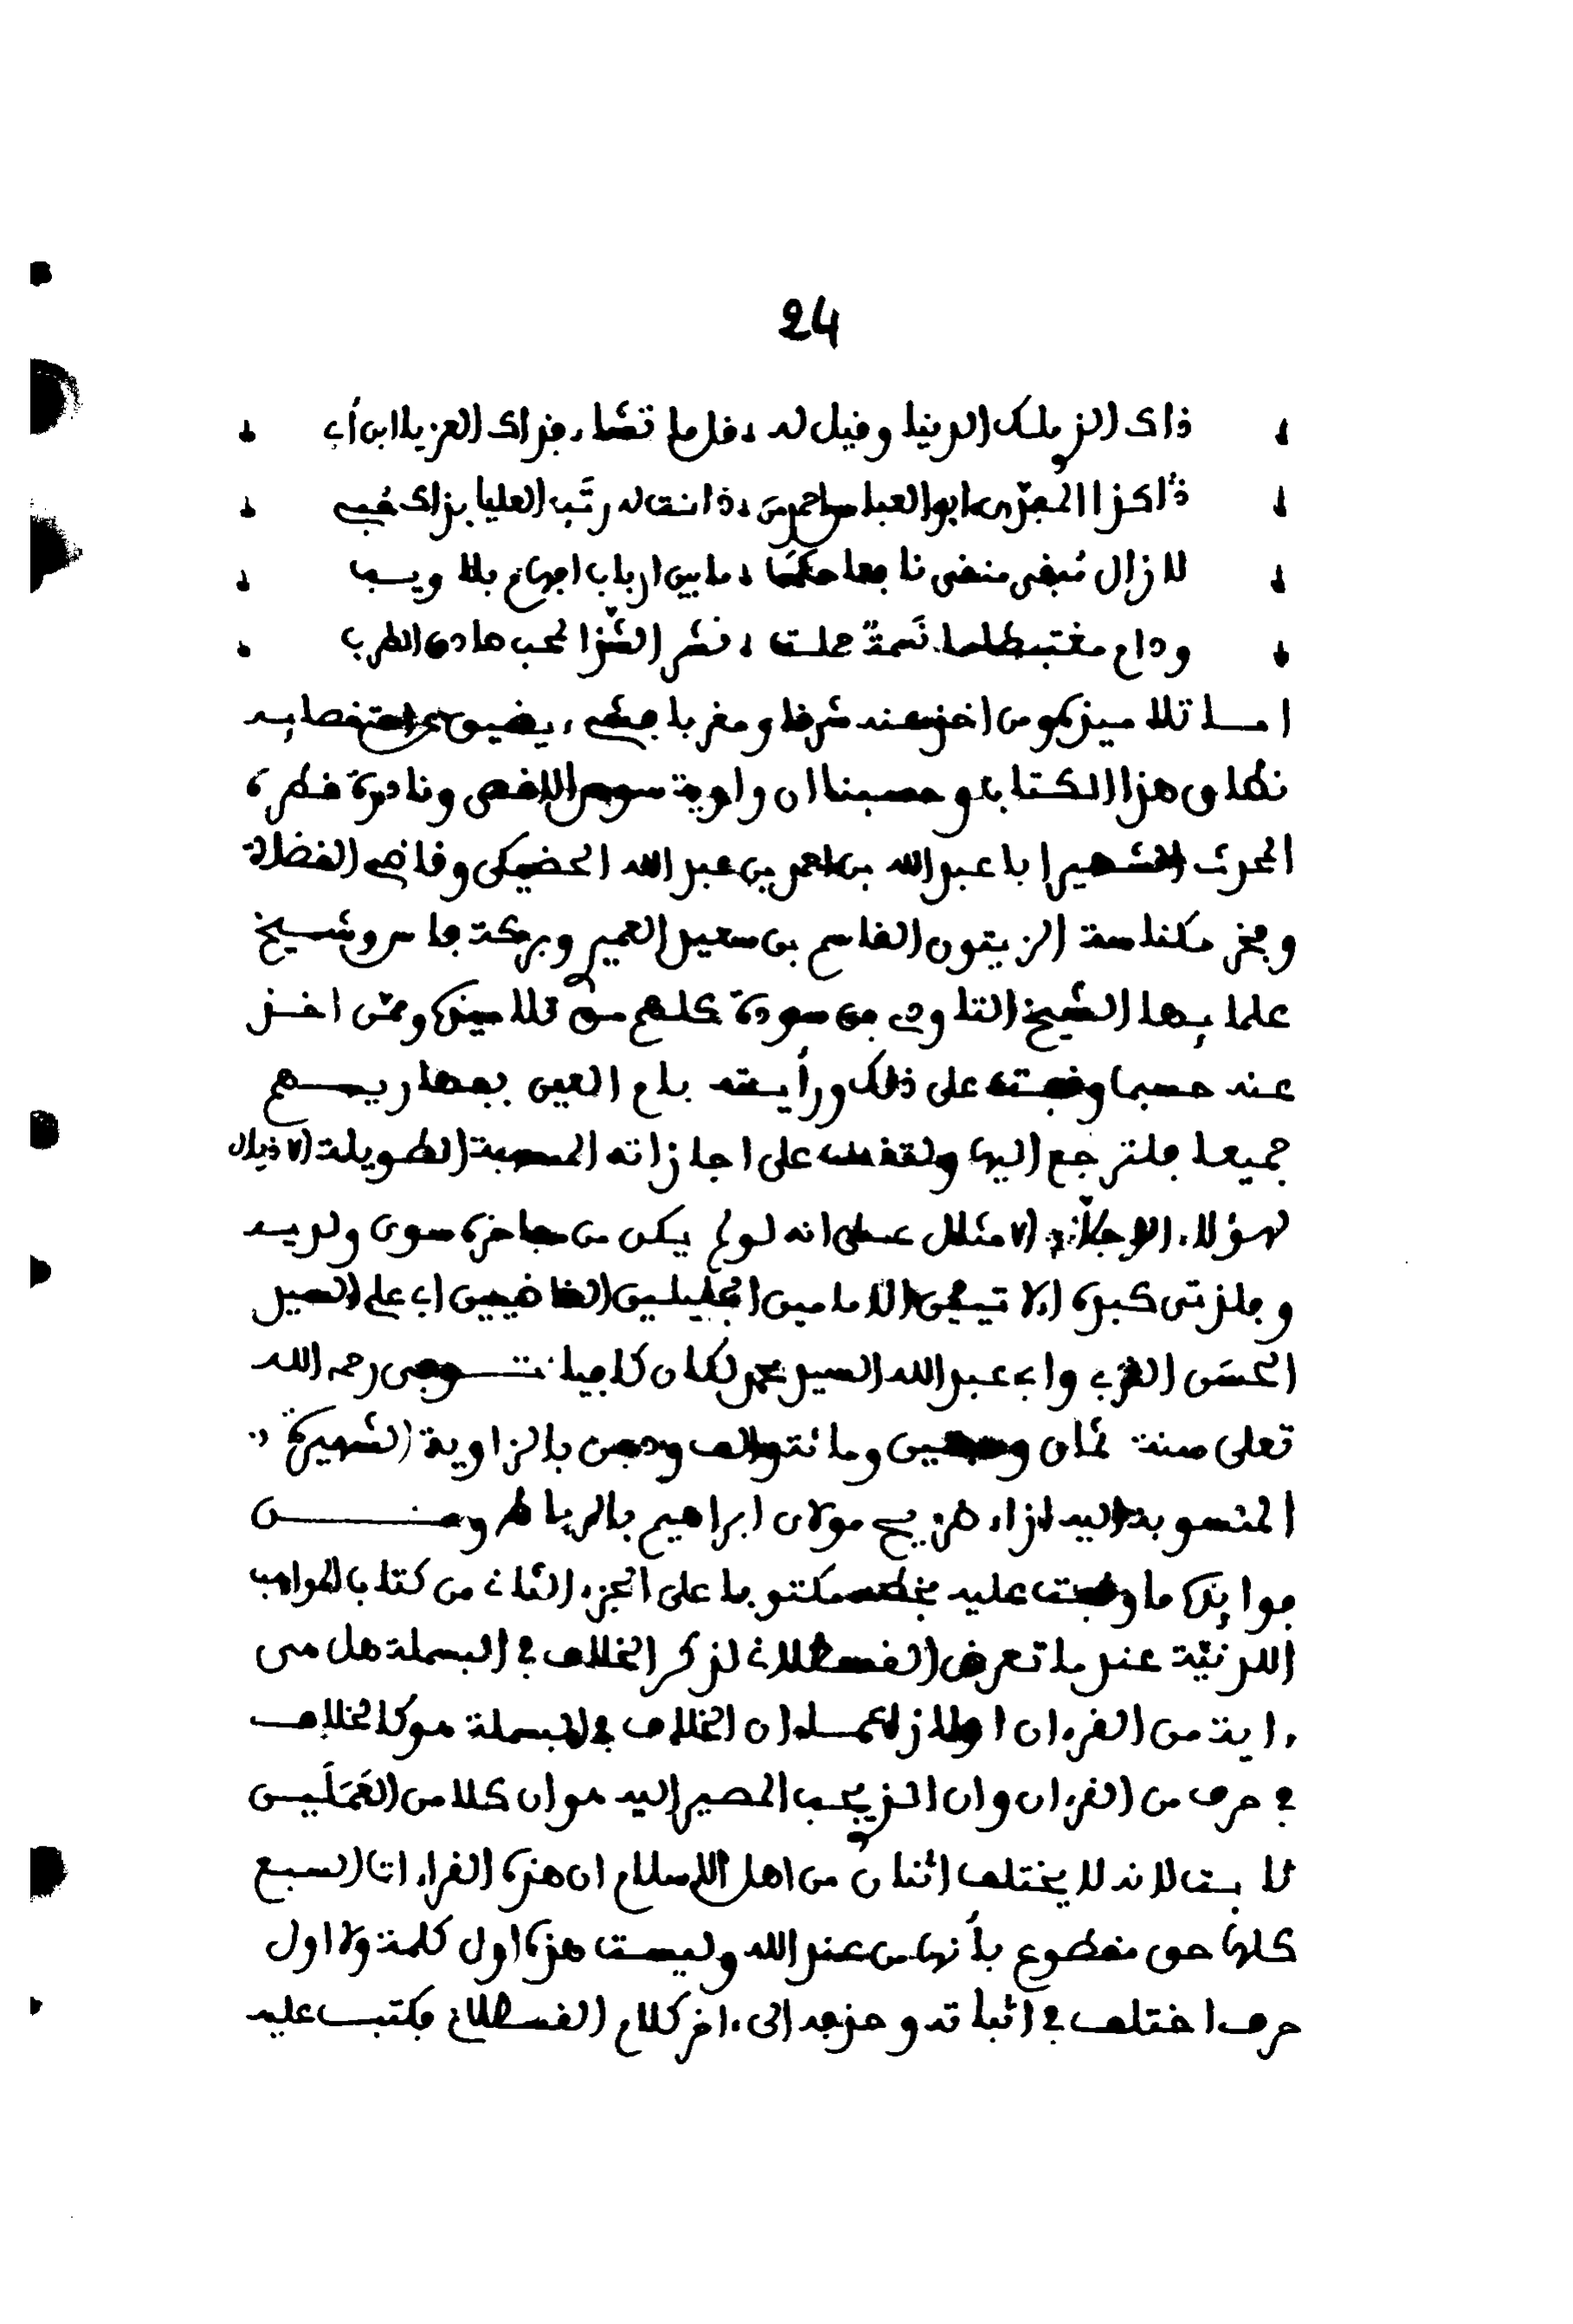 24
ذاك الذي ملك الدنيا وقيل له قل ما تشاء فذاك العز يا ابن أب
ذاك المعزى ابو العباس احمد من دانت له رتب العليا بذاك حُبي
لا زال مُبقى منقى نافعا حكما ما بين ارباب افهام بلا ريب
ودام مغتبطا ما نَسمةٌ حملت نشر الشذا لمحب هادي الطرب
امـا تلاميذه ومن اخذ عنه شرقا ومغربا فشيء يضيق عن استقصايـه
نطاق هذا الكتاب وحسبنا ان راوية سوس الاقصى ونادرة قطره
المحدث الشهير ابا عبد الله بن احمد بن عبد الله الحضيكي وقاضي القضاة
وفخر مكناسة الزيتون القاسم بن سعيد العميري وبركة فاس وشـيخ
علمايها الشيخ التاودي بن سودة كلهم من تلاميذه وممّن اخـذ
عنه حسبما وقفت على ذلك ورأيته بام العين بفهاريسـهم
جميعا فلترجع اليها ولتقف على اجازاته الطويلة الاذيال
لهؤلاء الاجلة الامثال على انه لو لم يكن من مفاخره سوى ولديـه
وفلذتي كبده الامامين الجليلين ابي علي السيد
الحسن الغربي وابي عبد الله السيد محمد لكان كافيا تـوفى رحمه الله
تعلى سنة ثمان وسبعين ومائة والف ودفن بالزاوية الشهيرة
المنسوبة اليه ازاء ضريح مولاي ابراهيم بالرباط ومـن
فوائده ما وقفت عليه بخطه مكتوبا على الجزء الثاني من كتاب المواهب
اللدنيّة عند ما تعرض القسطلاني لذكر الخلاف في البسملة هل هي
ءاية من القرءان ان الخلاف في البسملة هو كالخلاف
في حرف من القرءان وان الذي يجب المصير اليه هو ان كلا من العَمَلَيـن
ثابـت لانه لا يختلف اثنان من اهل الاسلام ان هذه القراءات السبع
كلها حق مقطوع بأنها من عند الله وليسـت هذه اول كلمة ولا اول
حرف اختلف في اثباته وحذفه الى ءاخر كلام القسطلاني فكتب عليه